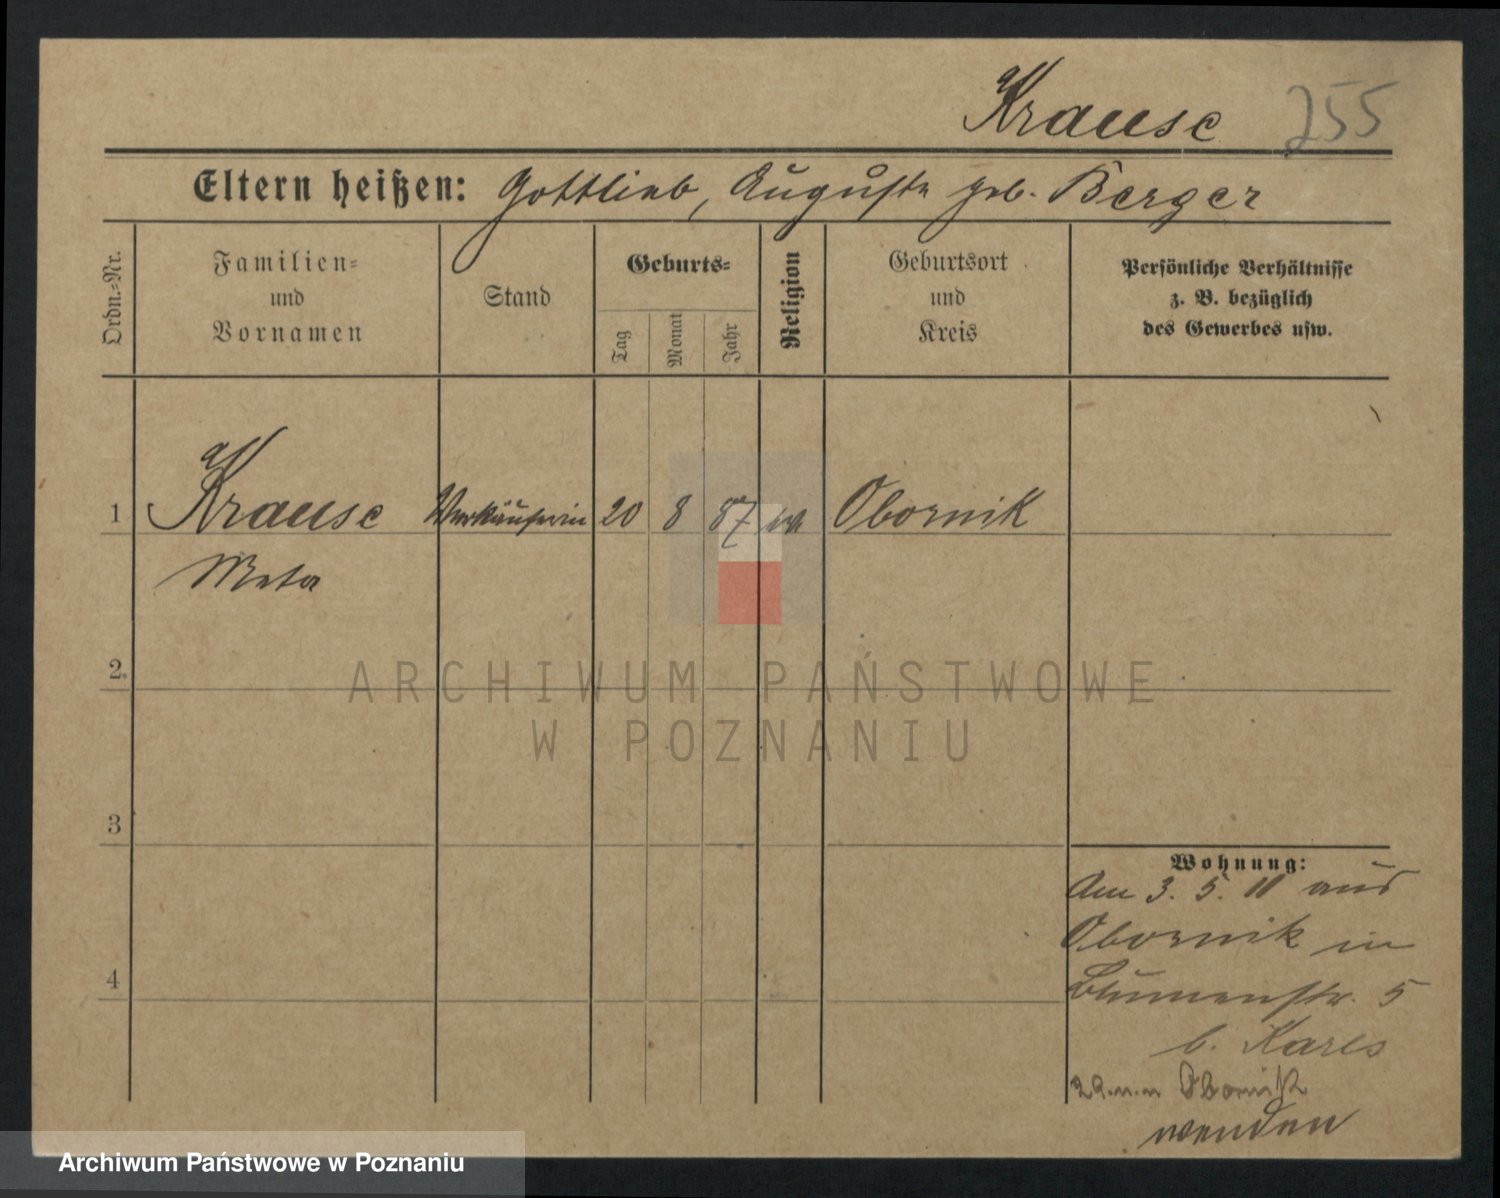 Krause 255
Eltern heißen: Gottlieb, Auguste geb. Berger
Ordn.-Nr.
Familien-
und
Vornamen
Stand
Geburts-
Tag
Monat
Jahr
Religion
Geburtsort
und
Kreis
Persönliche Verhältnisse
z. B. bezüglich
des Gewerbes usw.
1 Krause Verkäuferin 20 8 87 ev Obornik
Meta
2
3
4
Wohnung:
Am 3. 5. 11 aus
Obornik in
Blumenstr. 5
b. Karls
Obornik
wenden
ARCHIWUM PAŃSTWOWE
W POZNANIU
Archiwum Państwowe w Poznaniu